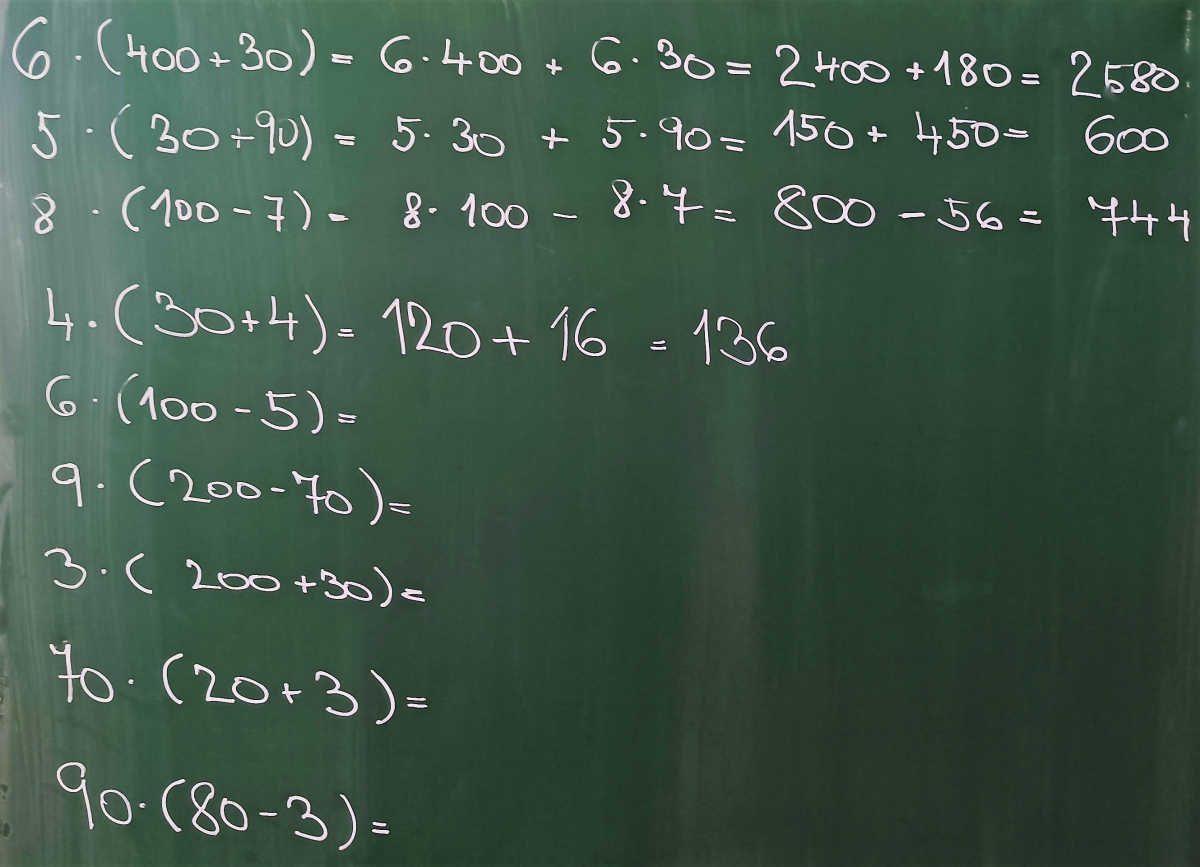 6 · (400 + 30) = 6 · 400 + 6 · 30 = 2400 + 180 = 2580
5 · (30 + 90) = 5 · 30 + 5 · 90 = 150 + 450 = 600
8 · (100 - 7) = 8 · 100 - 8 · 7 = 800 - 56 = 744
4 · (30 + 4) = 120 + 16 = 136
6 · (100 - 5) =
9 · (200 - 70) =
3 · (200 + 30) =
70 · (20 + 3) =
90 · (80 - 3) =